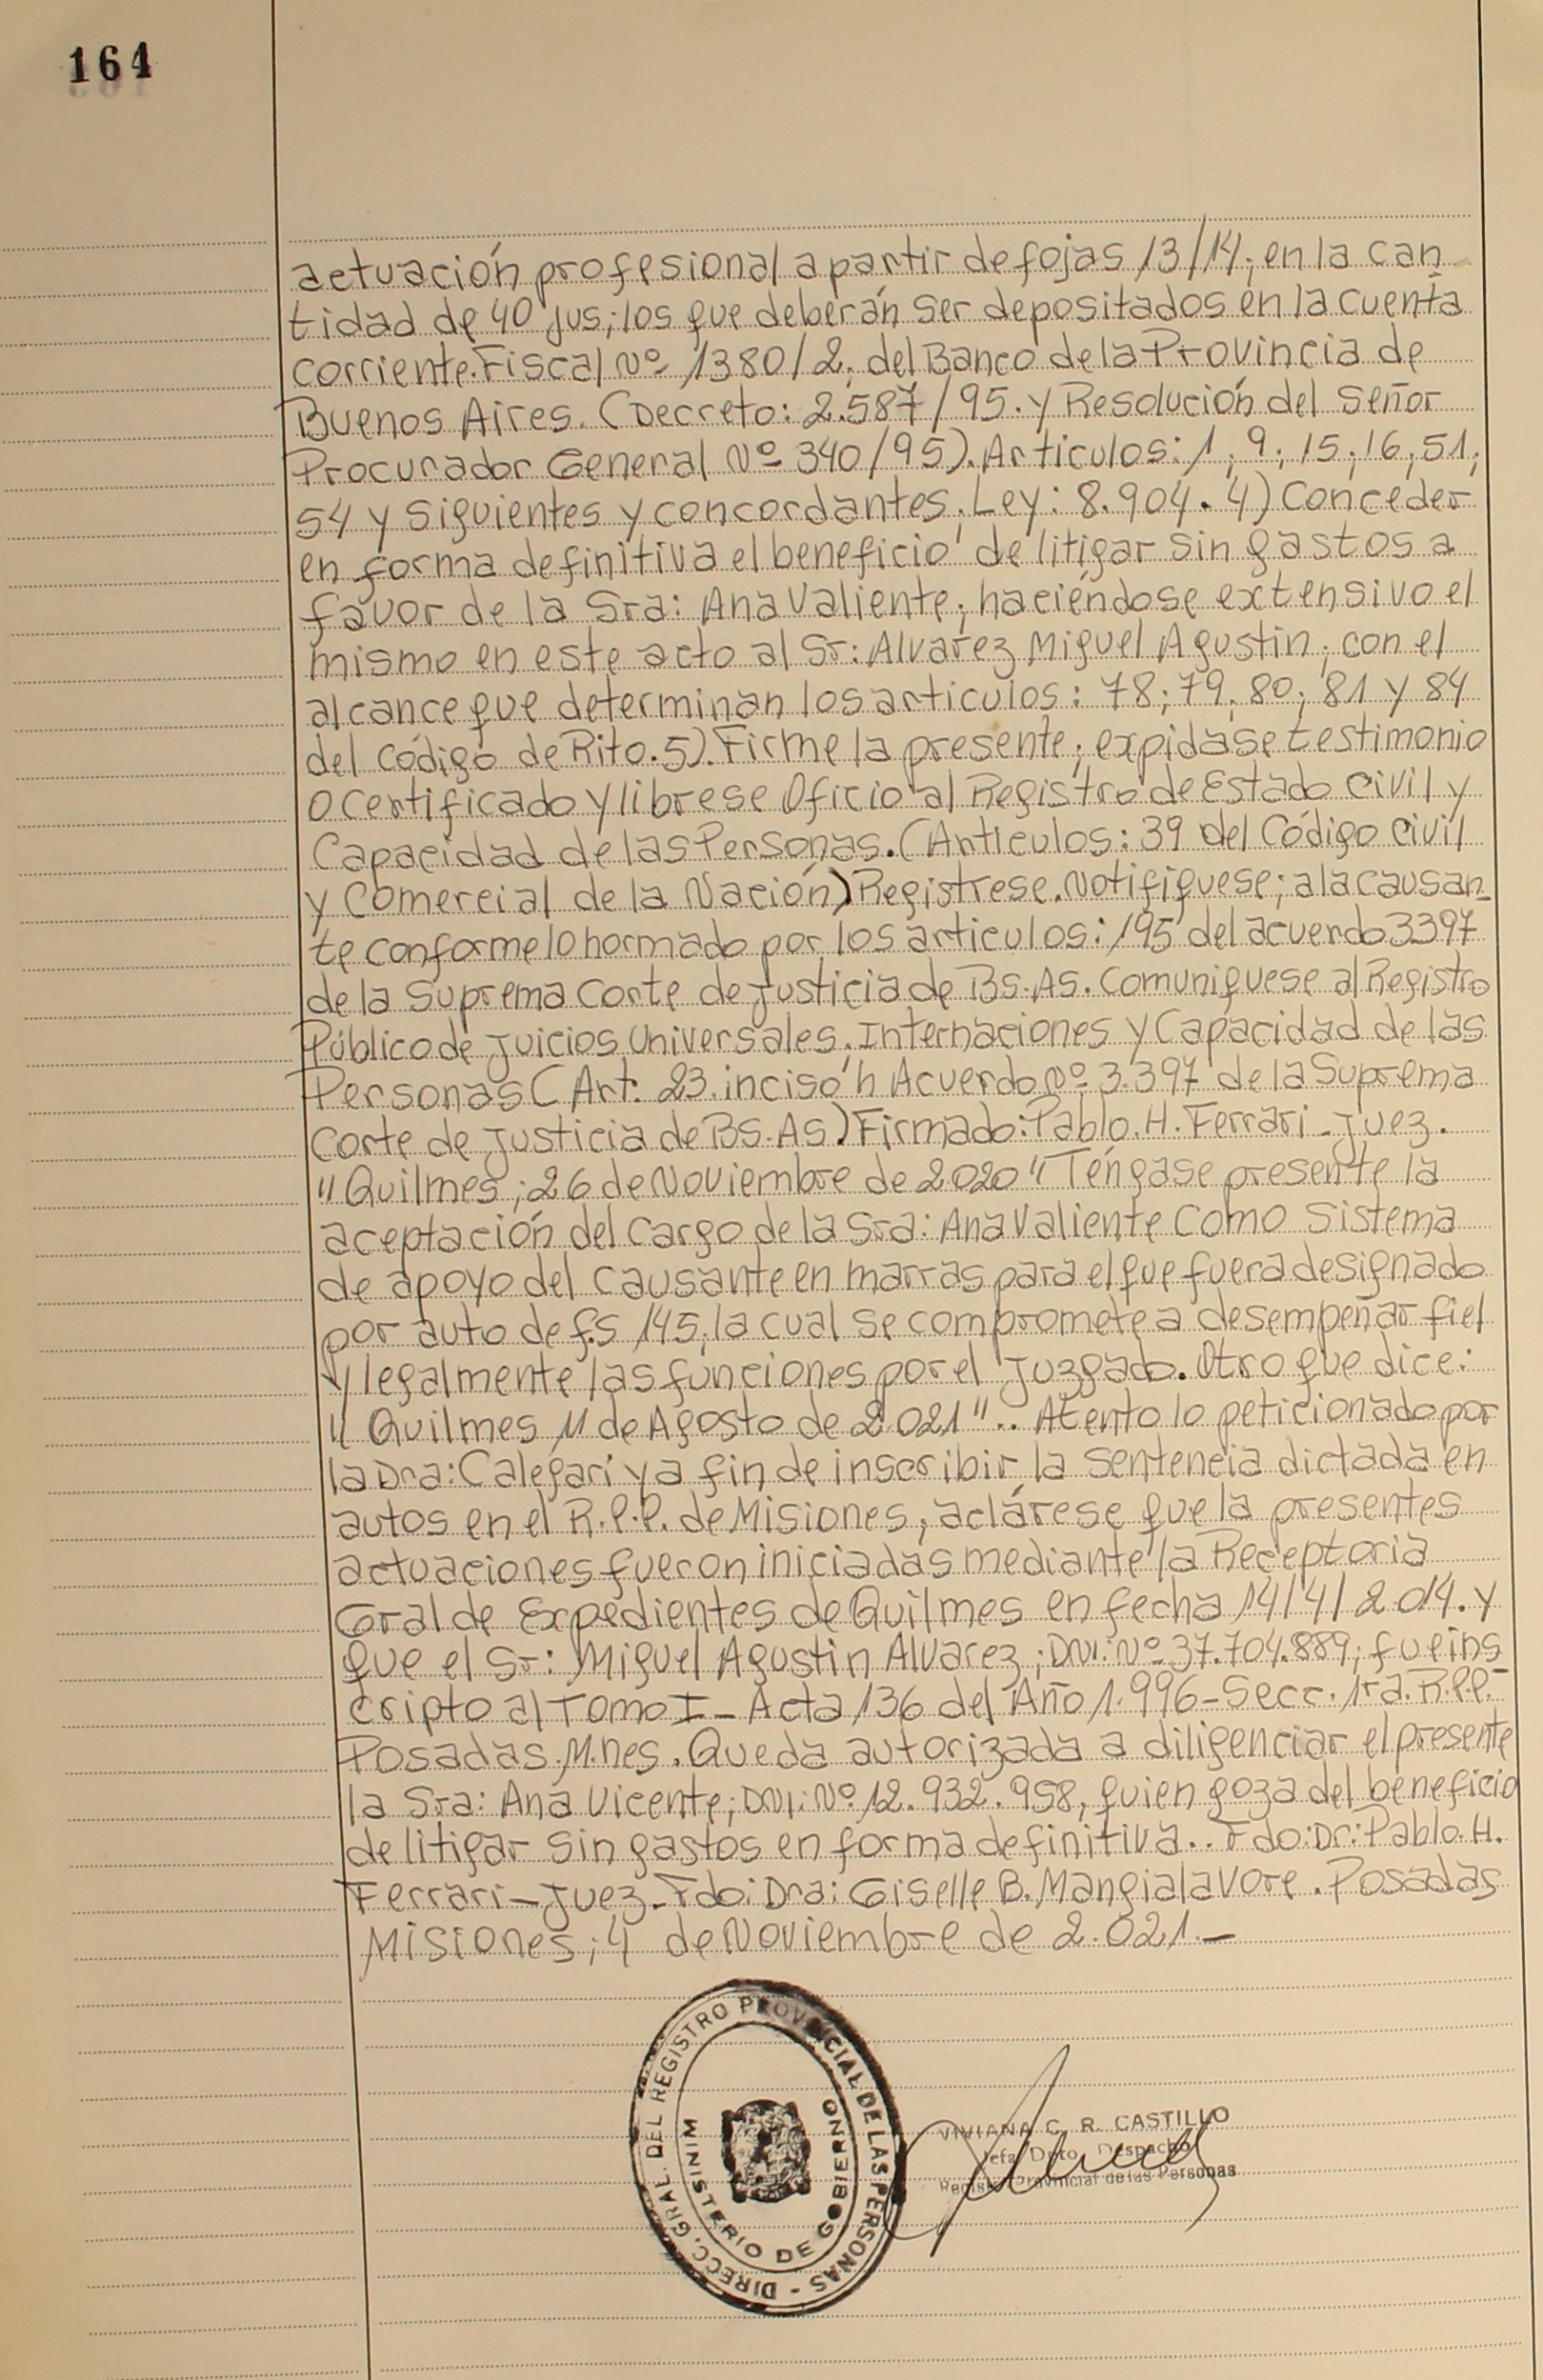 164
actuación profesional a partir de fojas 13/14; en la can
tidad de 40 jus; los que deberán ser depositados en la cuenta
corriente. Fiscal Nº 1380/2; del Banco de la Provincia de
Buenos Aires. (Decreto: 2.587/95. y Resolución del Señor
Procurador General Nº 340/95). Articulos: 1; 9; 15; 16; 51;
54 y siguientes y concordantes. Ley: 8.904. 4) Conceder
en forma definitiva el beneficio de litigar sin gastos a
favor de la Sra: Ana Valiente; haciéndose extensivo el
mismo en este acto al Sr: Alvarez Miguel Agustin; con el
alcance que determinan los articulos: 78; 79; 80; 81 y 84
del Código de Rito. 5). Firme la presente; expidase testimonio
o certificado y librese Oficio al Registro de Estado Civil y
Capacidad de las Personas. (Articulos: 39 del Código Civil
y Comercial de la Nación) Registrese. Notifiquese; a la causan-
te conforme lo normado por los articulos: 195 del acuerdo 3397
de la Suprema Corte de Justicia de Bs. As. Comuniquese al Registro
Público de Juicios Universales. Internaciones y Capacidad de las
Personas (Art: 23. inciso h Acuerdo Nº 3.397 de la Suprema
Corte de Justicia de Bs. As.) Firmado: Pablo. H. Ferrari - Juez.
"Quilmes; 26 de Noviembre de 2020" Téngase presente la
aceptación del Cargo de la Sra: Ana Valiente Como Sistema
de apoyo del causante en marras para el que fuera designado
por auto de fs 145; la cual se compromete a desempeñar fiel
y legalmente las funciones por el Juzgado. Otro que dice:
"Quilmes 11 de Agosto de 2021".. Atento lo peticionado por
la Dra: Calegari y a fin de inscribir la Sentencia dictada en
autos en el R.P.P. de Misiones; aclárese que la presentes
actuaciones fueron iniciadas mediante la Receptoria
Gral de Expedientes de Quilmes en fecha 14/4/2.014. y
que el Sr: Miguel Agustin Alvarez; DNI: Nº 37.704.889; fue ins
cripto al Tomo I - Acta 136 del Año 1.996 - Secc. 1ra. R.P.P.-
Posadas. M.nes. Queda autorizada a diligenciar el presente
la Sra: Ana Vicente; DNI: Nº 12.932.958, quien goza del beneficio
de litigar sin gastos en forma definitiva.. Fdo: Dr: Pablo. H.
Ferrari - Juez - Fdo: Dra: Giselle B. Mangialavore. Posadas
Misiones; 4 de Noviembre de 2.021.-
DIRECC. GRAL. DEL REGISTRO PROVINCIAL DE LAS PERSONAS -
MINISTERIO DE GOBIERNO
VIVIANA C. R. CASTILLO
Jefa Dpto. Despacho
Registro Provincial de las Personas